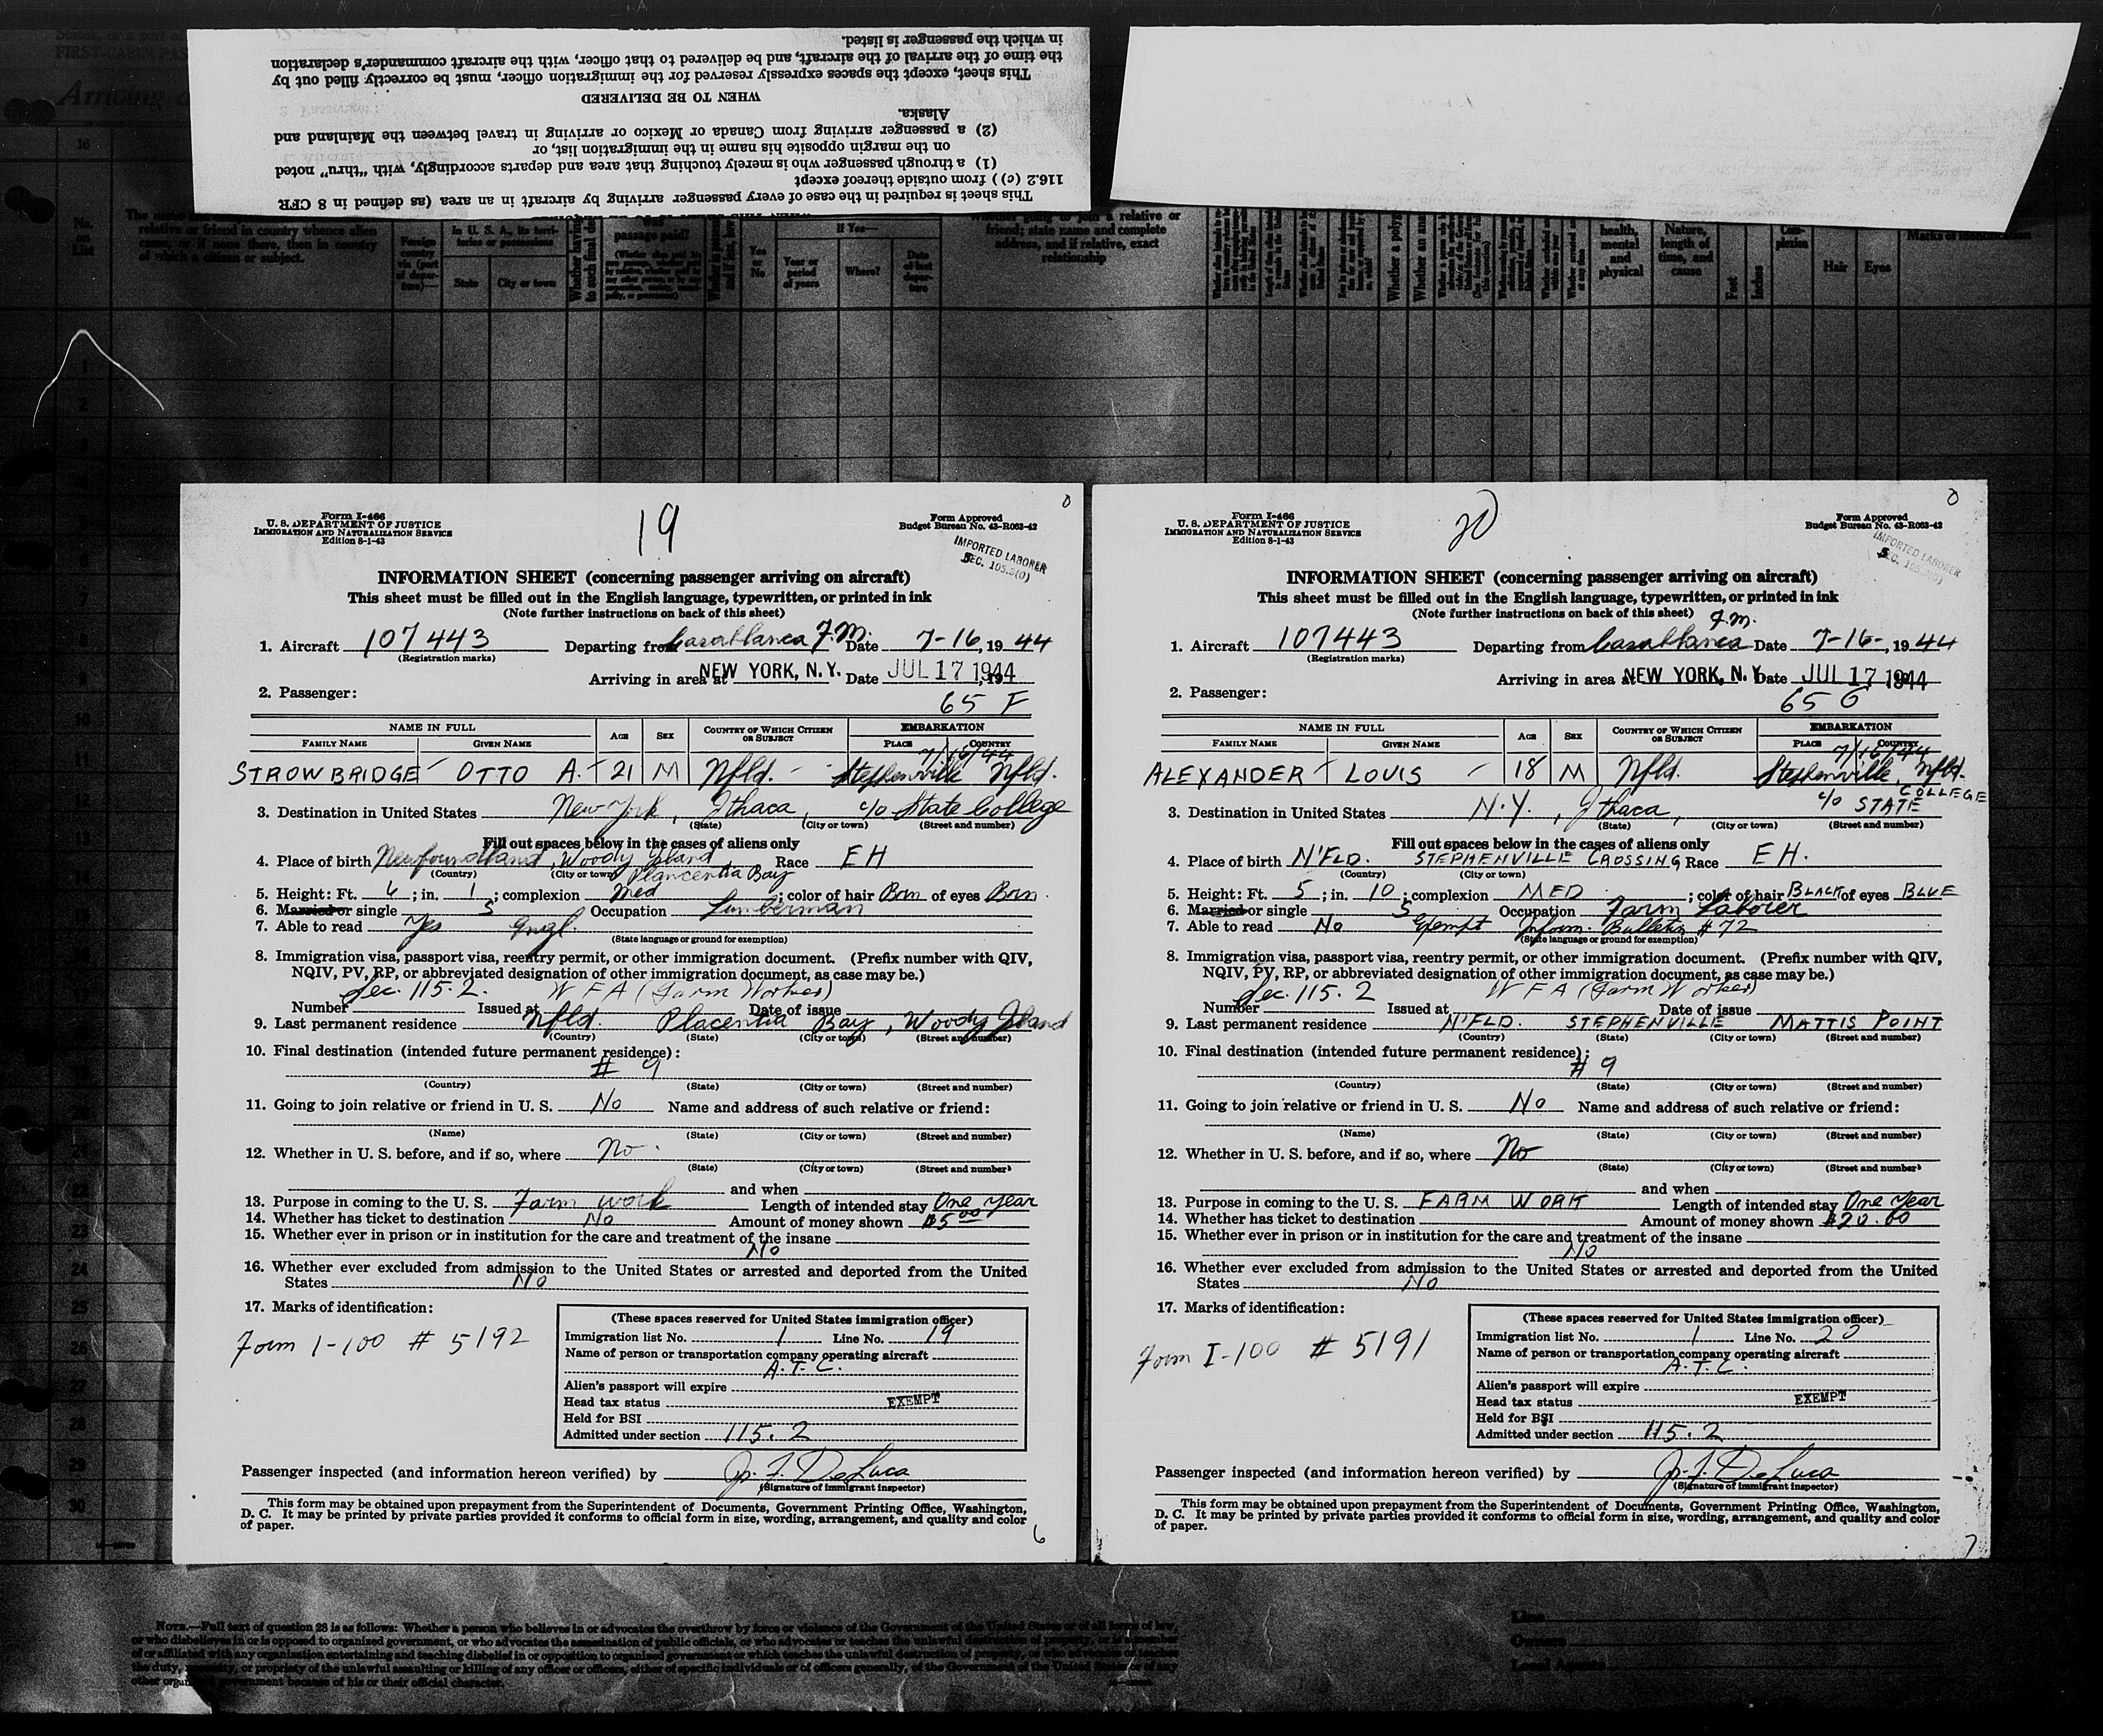 in which the passenger is listed.
the time of the arrival of the aircraft, and be delivered to that officer, with the aircraft commander's declaration
This sheet, except the spaces expressly reserved for the immigration officer, must be correctly filled out by
WHEN TO BE DELIVERED
Alaska.
(2) a passenger arriving from Canada or Mexico or arriving in travel between the Mainland and
on the margin opposite his name in the immigration list, or
(1) a through passenger who is merely touching that area and departs accordingly, with "thru" noted
116.2 (c)) from outside thereof except
This sheet is required in the case of every passenger arriving by aircraft in an area (as defined in 8 CFR
No. on List
relative or friend in country whence alien
came, or if none there, then in country
of which a citizen or subject.
In U. S. A., its territories or possessions
State
City or town
passage paid?
Yes or No
If Yes—
Year or period of years
Where?
friend; state name and complete
address, and if relative, exact
relationship
health, mental and physical
Nature, length of time, and cause
Feet
Inches
Hair
Eyes
Form I-466
U. S. DEPARTMENT OF JUSTICE
IMMIGRATION AND NATURALIZATION SERVICE
Edition 8-1-43
19
Form Approved
Budget Bureau No. 43-R063-42
IMPORTED LABORER
INFORMATION SHEET (concerning passenger arriving on aircraft)
This sheet must be filled out in the English language, typewritten, or printed in ink
(Note further instructions on back of this sheet)
1. Aircraft 107443 Departing from Casablanca F.M. Date 7-16 1944
(Registration marks)
Arriving in area at NEW YORK, N.Y. Date JUL 17 1944
2. Passenger:
65 F
NAME IN FULL AGE SEX COUNTRY OF WHICH CITIZEN OR SUBJECT EMBARKATION
FAMILY NAME GIVEN NAME PLACE COUNTRY
7/16/44
STROWBRIDGE OTTO A. 21 M Nfld. Stephenville Nfld.
3. Destination in United States New York, Ithaca, c/o State College
(State) (City or town) (Street and number)
Fill out spaces below in the cases of aliens only
4. Place of birth Newfoundland, Woody Island, Race EH
(Country) (City or town) Plancentia Bay
5. Height: Ft. 6; in. 1; complexion Med; color of hair Brn of eyes Brn.
6. Married or single S Occupation Lumberman
7. Able to read Yes Engl.
(State language or ground for exemption)
8. Immigration visa, passport visa, reentry permit, or other immigration document. (Prefix number with QIV,
NQIV, PV, RP, or abbreviated designation of other immigration document, as case may be.)
Sec. 115.2. WFA (Farm Worker)
Number Issued at Date of issue
9. Last permanent residence Nfld. Placentia Bay, Woody Island
(Country) (State) (City or town) (Street and number)
10. Final destination (intended future permanent residence):
# 9
(Country) (State) (City or town) (Street and number)
11. Going to join relative or friend in U. S. No Name and address of such relative or friend:
(Name) (State) (City or town) (Street and number)
12. Whether in U. S. before, and if so, where No.
(State) (City or town) (Street and number)
and when
13. Purpose in coming to the U. S. Farm work Length of intended stay One year
14. Whether has ticket to destination No Amount of money shown $5.00
15. Whether ever in prison or in institution for the care and treatment of the insane
No
16. Whether ever excluded from admission to the United States or arrested and deported from the United
States No
17. Marks of identification:
Form I-100 # 5192
(These spaces reserved for United States immigration officer)
Immigration list No. 1 Line No. 19
Name of person or transportation company operating aircraft
A.T.C.
Alien's passport will expire
Head tax status EXEMPT
Held for BSI
Admitted under section 115.2
Passenger inspected (and information hereon verified) by Jr. F. DeLuca
(Signature of immigrant inspector)
This form may be obtained upon prepayment from the Superintendent of Documents, Government Printing Office, Washington,
D. C. It may be printed by private parties provided it conforms to official form in size, wording, arrangement, and quality and color
of paper.
6
Form I-466
U. S. DEPARTMENT OF JUSTICE
IMMIGRATION AND NATURALIZATION SERVICE
Edition 8-1-43
20
Form Approved
Budget Bureau No. 43-R063-42
IMPORTED LABORER
INFORMATION SHEET (concerning passenger arriving on aircraft)
This sheet must be filled out in the English language, typewritten, or printed in ink
(Note further instructions on back of this sheet)
F.M.
1. Aircraft 107443 Departing from Casablanca Date 7-16-, 1944
(Registration marks)
Arriving in area at NEW YORK, N.Y. Date JUL 17 1944
2. Passenger:
65 G
NAME IN FULL AGE SEX COUNTRY OF WHICH CITIZEN OR SUBJECT EMBARKATION
FAMILY NAME GIVEN NAME PLACE COUNTRY
7/16/44
ALEXANDER LOUIS 18 M Nfld. Stephenville, Nfld.
3. Destination in United States N.Y., Ithaca, c/o STATE COLLEGE
(State) (City or town) (Street and number)
Fill out spaces below in the cases of aliens only
4. Place of birth N'FLD. STEPHENVILLE CROSSING Race EH.
(Country) (City or town)
5. Height: Ft. 5; in. 10; complexion MED; color of hair BLACK of eyes BLUE
6. Married or single S Occupation Farm Laborer
7. Able to read No Exempt Inform. Bulletin #72
(State language or ground for exemption)
8. Immigration visa, passport visa, reentry permit, or other immigration document. (Prefix number with QIV,
NQIV, PV, RP, or abbreviated designation of other immigration document, as case may be.)
Sec. 115.2 WFA (Farm Worker)
Number Issued at Date of issue
9. Last permanent residence N'FLD. STEPHENVILLE MATTIS POINT
(Country) (State) (City or town) (Street and number)
10. Final destination (intended future permanent residence):
# 9
(Country) (State) (City or town) (Street and number)
11. Going to join relative or friend in U. S. No Name and address of such relative or friend:
(Name) (State) (City or town) (Street and number)
12. Whether in U. S. before, and if so, where No
(State) (City or town) (Street and number)
and when
13. Purpose in coming to the U. S. FARM WORK Length of intended stay One Year
14. Whether has ticket to destination Amount of money shown $20.00
15. Whether ever in prison or in institution for the care and treatment of the insane
No
16. Whether ever excluded from admission to the United States or arrested and deported from the United
States No
17. Marks of identification:
Form I-100 # 5191
(These spaces reserved for United States immigration officer)
Immigration list No. 1 Line No. 20
Name of person or transportation company operating aircraft
A.T.C.
Alien's passport will expire
Head tax status EXEMPT
Held for BSI
Admitted under section 115.2
Passenger inspected (and information hereon verified) by Jr. F. DeLuca
(Signature of immigrant inspector)
This form may be obtained upon prepayment from the Superintendent of Documents, Government Printing Office, Washington,
D. C. It may be printed by private parties provided it conforms to official form in size, wording, arrangement, and quality and color
of paper.
7
NOTE.—Full text of question 28 is as follows: Whether a person who believes in or advocates the overthrow by force or violence of the Government of the United States or of all forms of law,